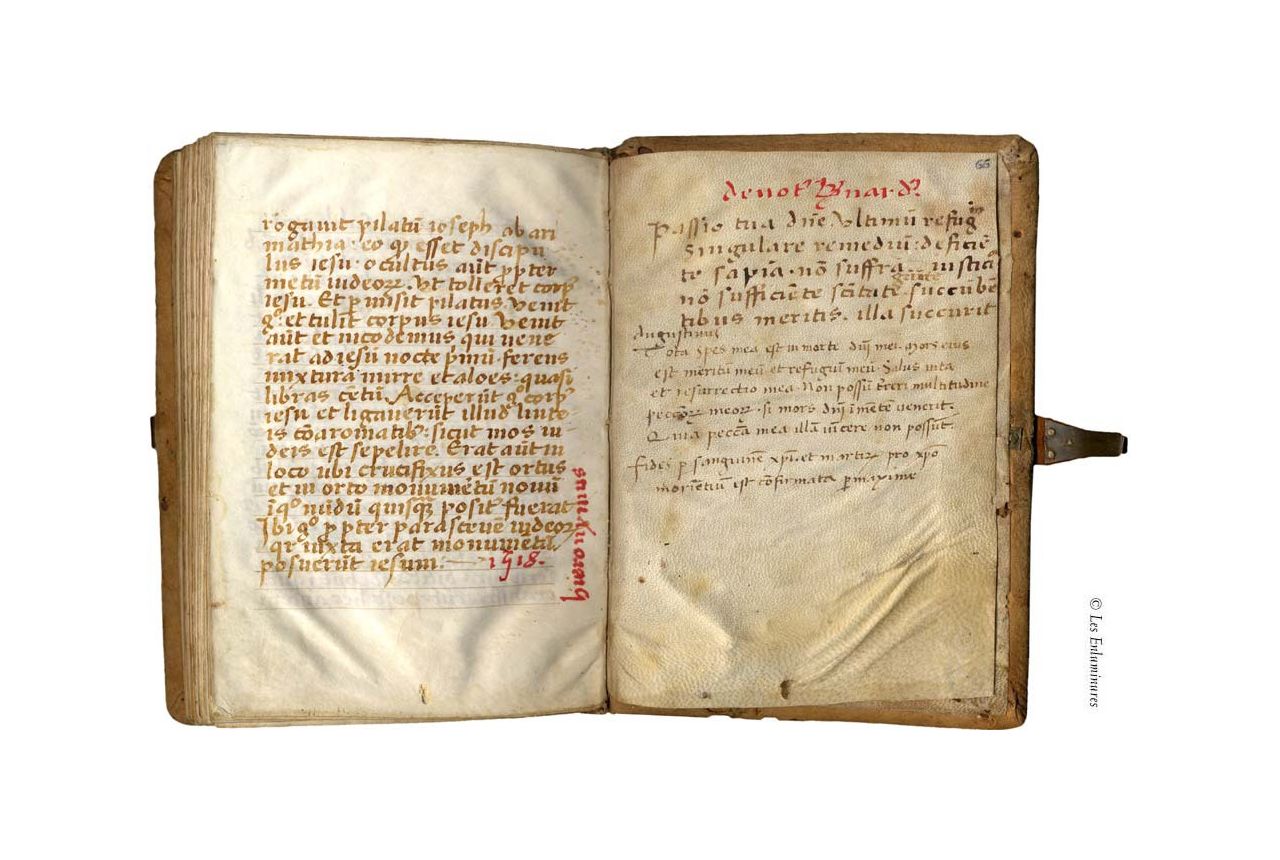 rogauit pilatū ioseph ab ari
mathia · eo qꝫ esset discipu
lus iesu · ocultus aūt ꝓpter
metū iudeoꝝ. Vt tolleret corpꝰ
iesu. Et ꝑmisit pilatus. Venit
gͦ · et tulit corpus iesu Venit
aūt et nicodemus qui uene
rat ad iesū nocte pͥmū · ferens
mixturā mirre et aloes · quasi
libras cētū. Acceperūt gͦ corpꝰ
iesu et ligauerūt illud linteo
is cū aromatibꝰ · sicut mos iu
deis est sepelire. Erat aūt in
loco ubi crucifixus est ortus
et in orto monumētū nouū
ī qͦ nūdū quisqꝫ positꝰ fuerat
Ibi gͦ ꝓpter parasceuē iudeoꝝ
qꝛ iuxta erat monumētū
posuerūt iesum. 1518.
hieronymus
66
deuotꝰ Bernardꝰ
Passio tua dn̄e Vltimū refugiū
singulare remediū : deficiē
te sapīa · nō suffra iusticia
nō sufficiēte sc̄itate succūbē
tibus meritis. illa succurit
Augustinus
Tota spes mea est in morte dn̄i mei · Mors eius
est meritū meū et refugiū meū Salus uita
et resurrectio mea. Non possū terreri multitudine
peccatoꝝ meoꝝ · si mors dn̄i ī mētē venerit.
Quia peccā mea illā uīcere non possūt
Fides ꝑ sanguinē xp̄i et martiꝝ pro xp̄o
moriētium est cōfirmata ꝑmaxime
© Les Enluminures